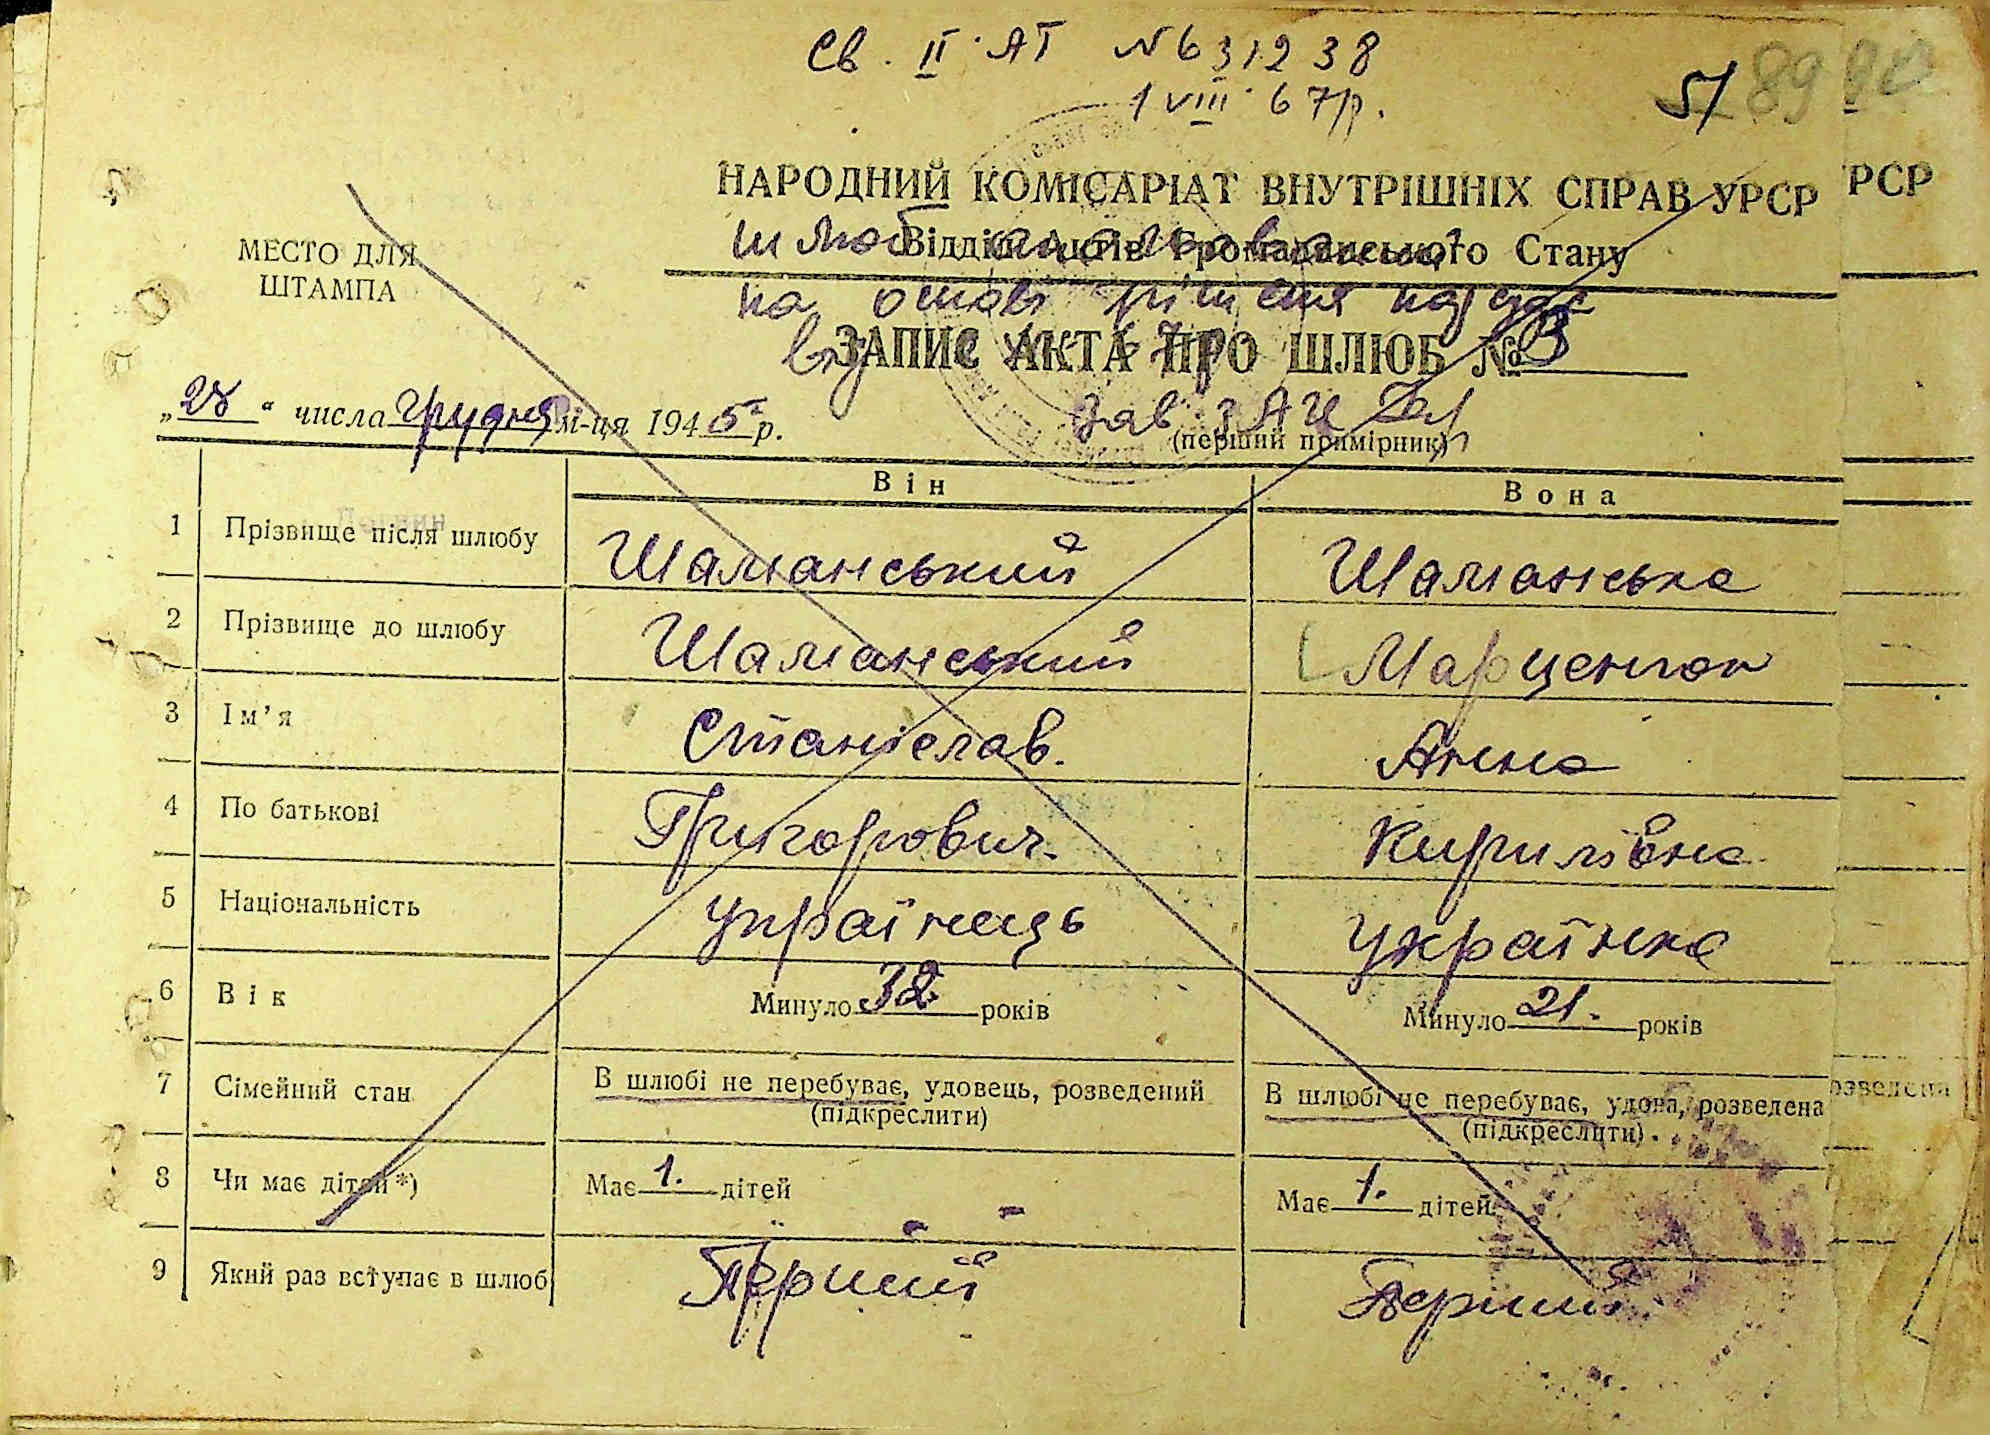 Св. II АТ № 631238
1 VIII 67р.
51 89 90
НАРОДНИЙ КОМІСАРІАТ ВНУТРІШНІХ СПРАВ УРСР
РСР
Відділ Актів Громадянського Стану
шлюб
на основі рішення нарсуда
МЕСТО ДЛЯ
ШТАМПА
ЗАПИС АКТА ПРО ШЛЮБ № 3
зав ЗАГС
„28“ числа грудня м-ця 1945 р.
(перший примірник)
Він Вона
1 Прізвище після шлюбу Шаманський Шаманська
2 Прізвище до шлюбу Шаманський Марценюк
3 Ім'я Станіслав. Анна
4 По батькові Григорович. Кирилівна
5 Національність українець українка
6 Вік Минуло 32 років Минуло 21. років
7 Сімейний стан В шлюбі не перебуває, удовець, розведений В шлюбі не перебуває, удова, розведена
(підкреслити) (підкреслити)
8 Чи має дітей*) Має 1. дітей Має 1. дітей
9 Який раз вступає в шлюб Перший Перший